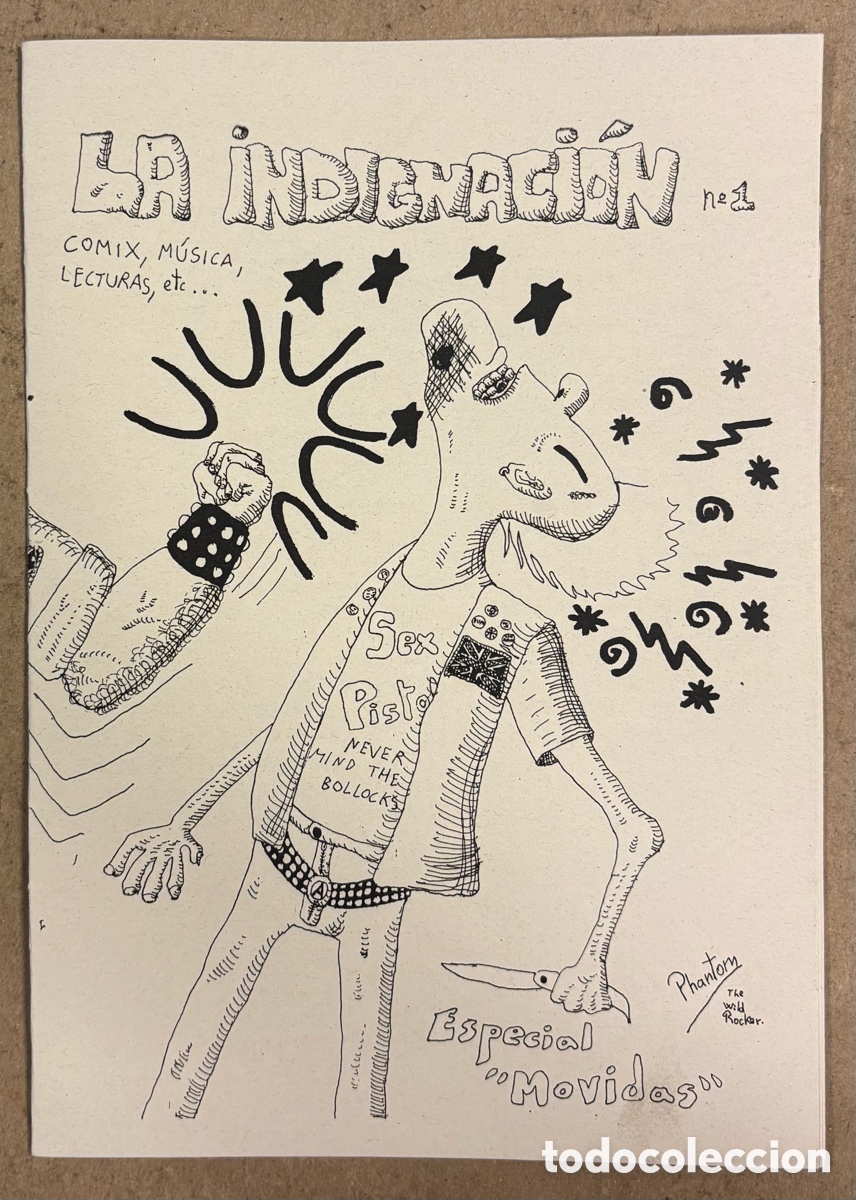 LA INDIGNACIÓN nº1
COMIX, MÚSICA,
LECTURAS, etc...
Sex
Pisto
NEVER
MIND THE
BOLLOCKS
A
Phantom
The
Wild
Rocker.
Especial
"Movidas"
todocoleccion